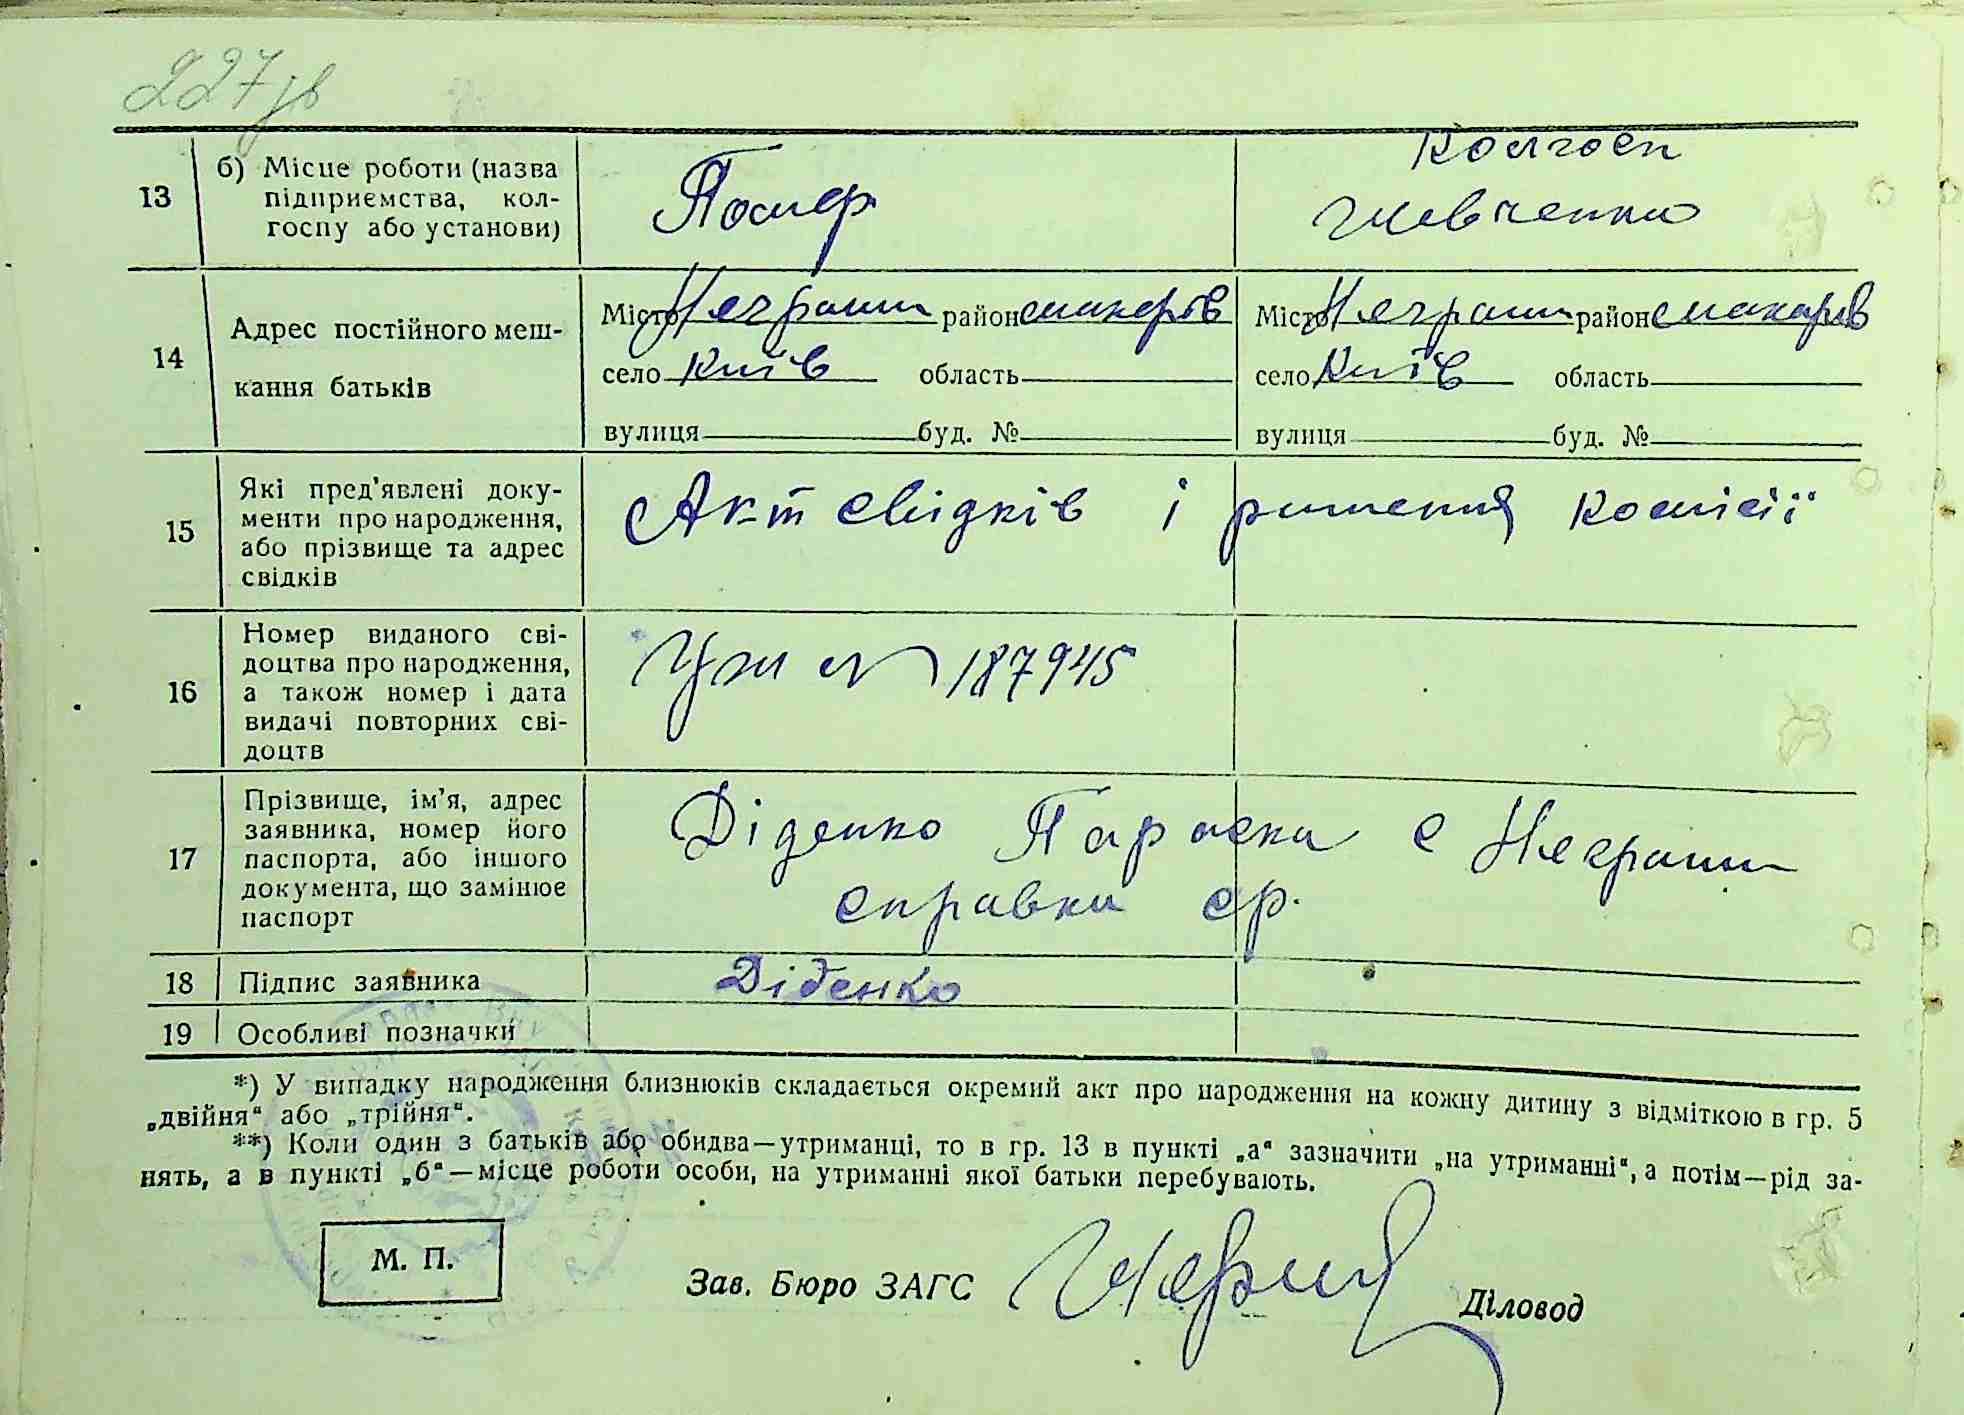 227зв
13
б) Місце роботи (назва
підприємства, кол-
госпу або установи)
Помер
Колгосп
Шевченка
14
Адрес постійного меш-
кання батьків
Місто Неграши район макарів
село Київ область
вулиця буд. №
Місто Неграши район макарів
село Київ область
вулиця буд. №
15
Які пред'явлені доку-
менти про народження,
або прізвище та адрес
свідків
Акт свідків і ришення комісії
16
Номер виданого сві-
доцтва про народження,
а також номер і дата
видачі повторних сві-
доцтв
№ 187945
17
Прізвище, ім'я, адрес
заявника, номер його
паспорта, або іншого
документа, що замінює
паспорт
Діденко Параска с Неграши
справка ср.
18
Підпис заявника
Діденко
19
Особливі позначки
*) У випадку народження близнюків складається окремий акт про народження на кожну дитину з відміткою в гр. 5
„двійня“ або „трійня“.
**) Коли один з батьків або обидва—утриманці, то в гр. 13 в пункті „а“ зазначити „на утриманні“, а потім—рід за-
нять, а в пункті „б“—місце роботи особи, на утриманні якої батьки перебувають.
М. П.
Зав. Бюро ЗАГС
Діловод